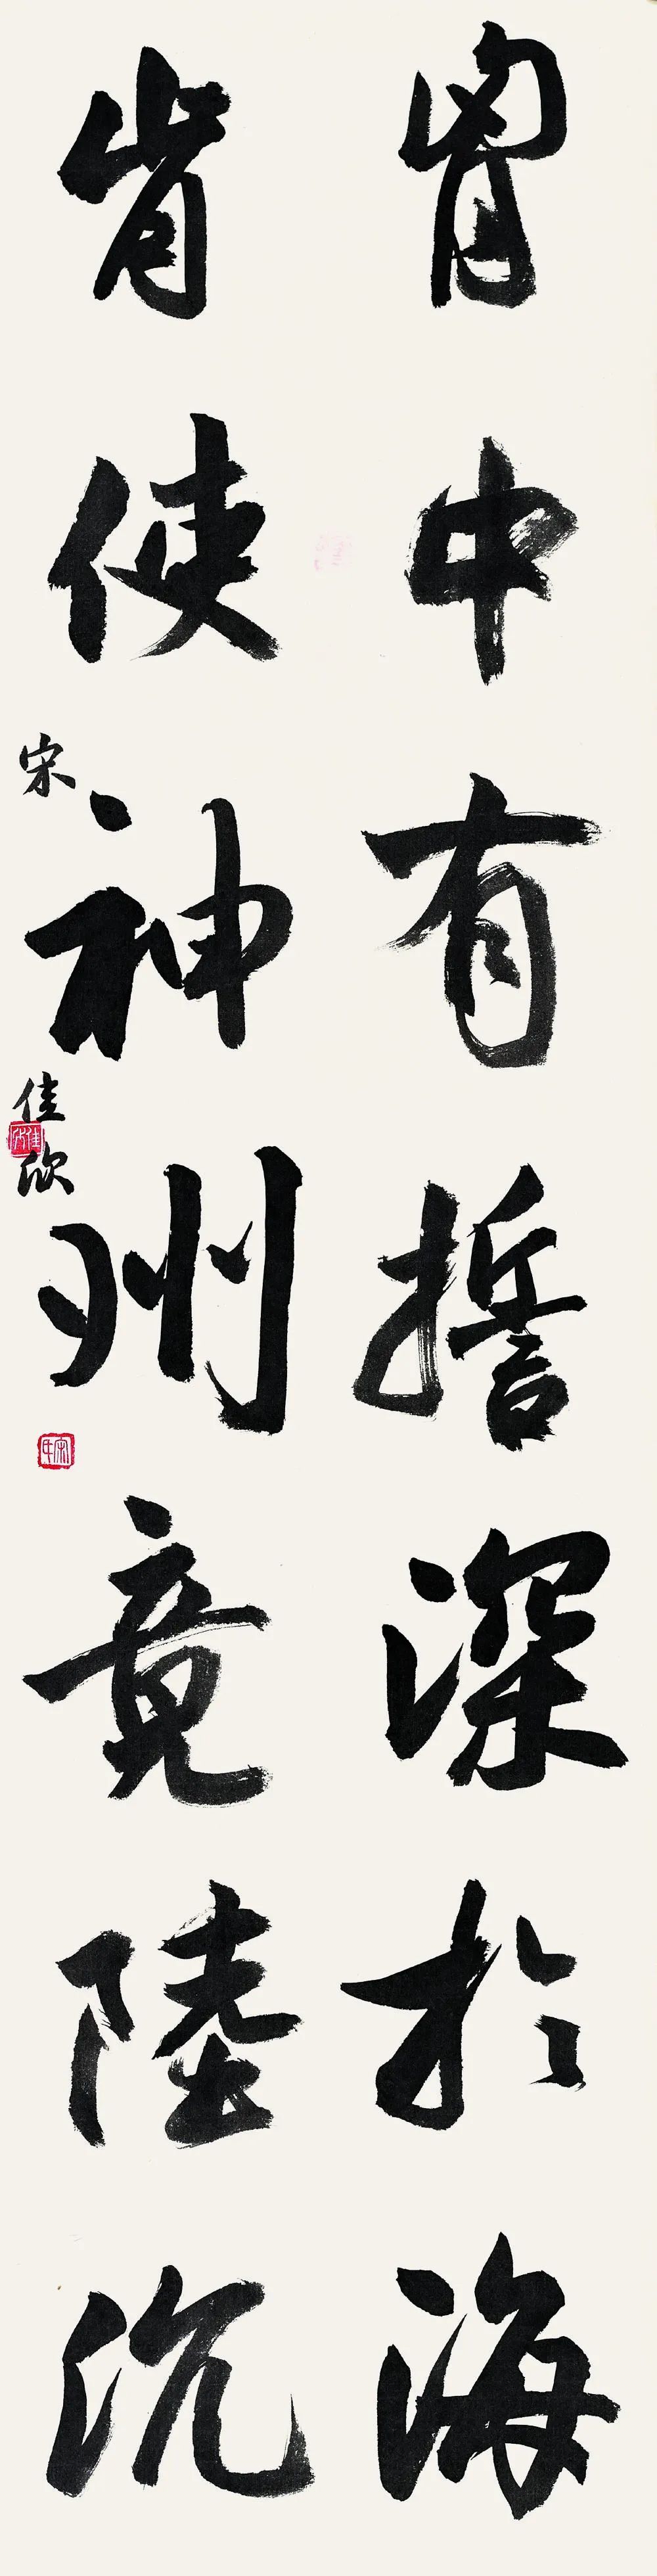 胷中有誓深於海
肯使神州竟陸沉
宋佳欣
宋氏